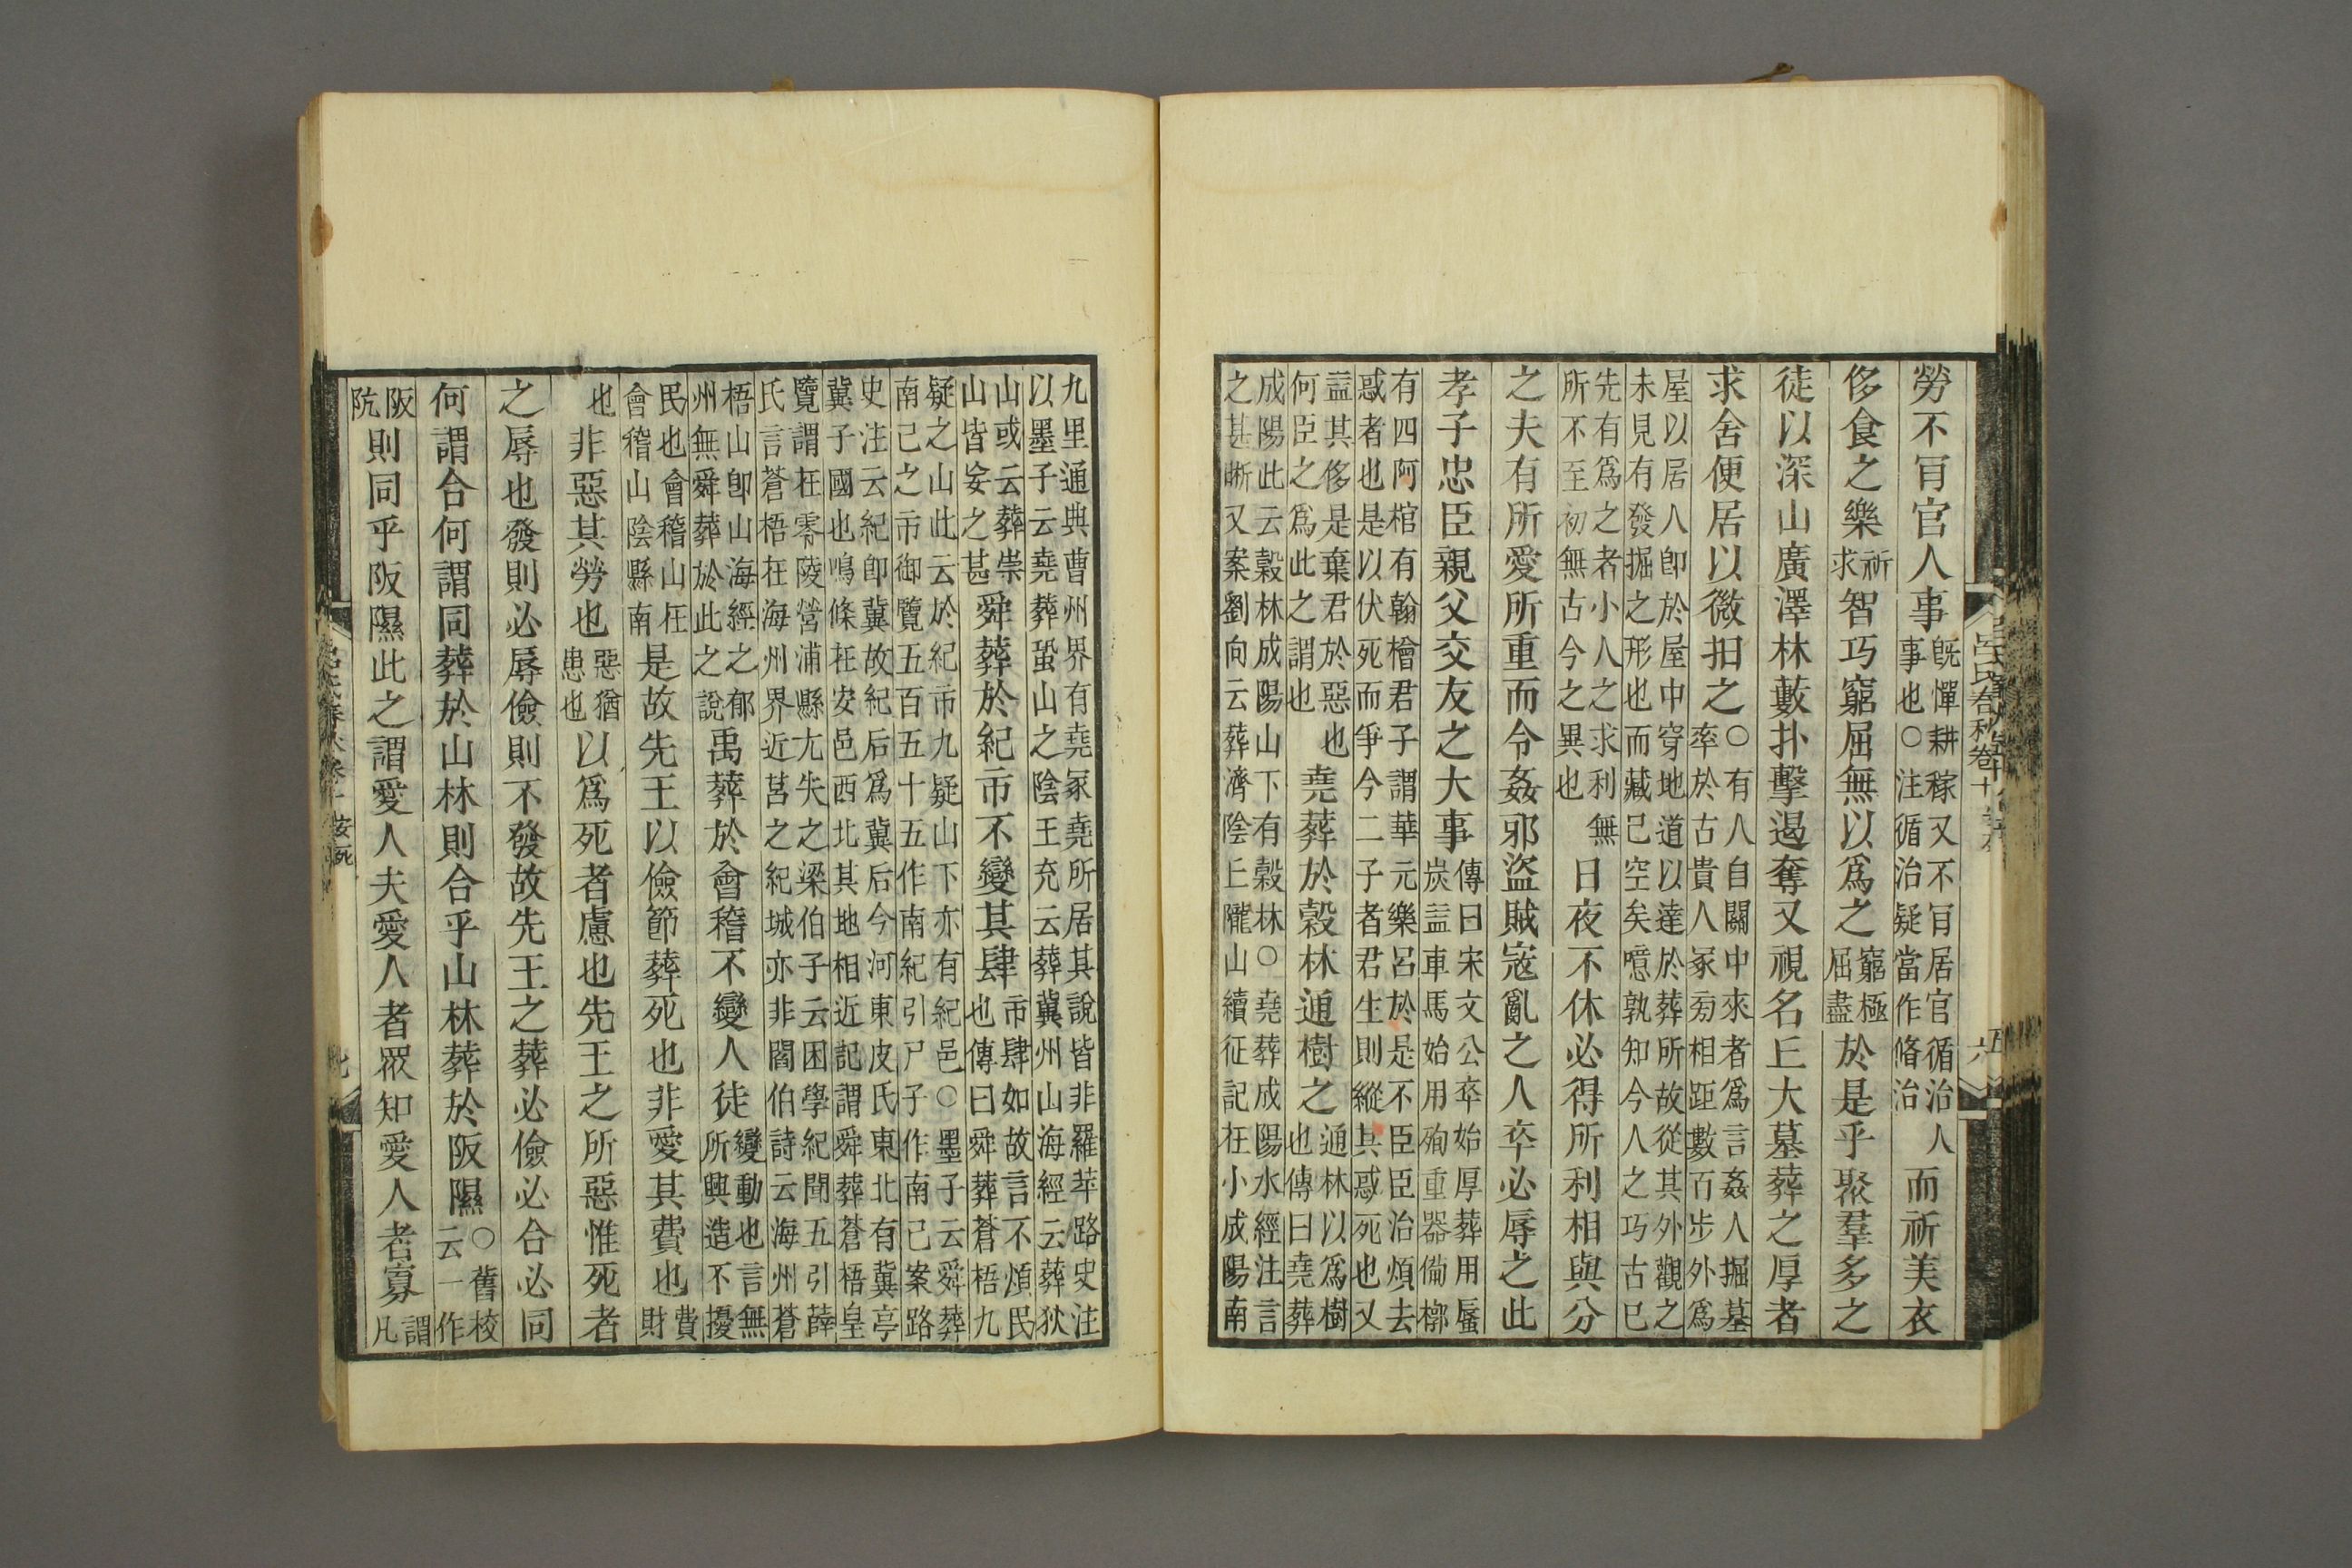 勞不肎官人事既憚耕稼又不肎居官循治人事也○注循治疑當作脩治而祈美衣
侈食之樂祈求智巧窮屈無以爲之窮極屈盡於是乎聚羣多之
徒以深山廣澤林藪扑擊遏奪又視名丘大墓葬之厚者
求舍便居以微抇之○有人自關中來者爲言姦人掘墓率於古貴人冢旁相距數百步外爲
屋以居人卽於屋中穿地道以達於葬所故從其外觀之未見有發掘之形也而藏已空矣噫孰知今人之巧古已
先有爲之者小人之求利無所不至初無古今之異也日夜不休必得所利相與分
之夫有所愛所重而令姦邪盜賊寇亂之人卒必辱之此
孝子忠臣親父交友之大事傳曰宋文公卒始厚葬用蜃炭益車馬始用殉重器備槨
有四阿棺有翰檜君子謂華元樂呂於是不臣臣治煩去惑者也是以伏死而爭今二子者君生則縱其惑死也又
益其侈是棄君於惡也何臣之爲此之謂也堯葬於穀林通樹之通林以爲樹也傳曰堯葬
成陽此云穀林成陽山下有穀林○堯葬成陽水經注言之甚晰又案劉向云葬濟陰丘隴山續征記在小成陽南
呂氏春秋卷十
九里通典曹州界有堯冢堯所居其說皆非羅苹路史注以墨子云堯葬蛩山之陰王充云葬冀州山海經云葬狄
山或云葬崇山皆妄之甚舜葬於紀市不變其肆市肆如故言不煩民也傳曰舜葬蒼梧九
疑之山此云於紀市九疑山下亦有紀邑○墨子云舜葬南己之市御覽五百五十五作南紀引尸子作南己案路
史注云紀卽冀故紀后爲冀后今河東皮氏東北有冀亭冀子國也鳴條在安邑西北其地相近記謂舜葬蒼梧皇
覽謂在零陵營浦縣尤失之梁伯子云困學紀聞五引薛氏言蒼梧在海州界近莒之紀城亦非閻伯詩云海州蒼
梧山卽山海經之郁州無舜葬於此之說禹葬於會稽不變人徒變動也言無所興造不擾
民也會稽山在會稽山陰縣南是故先王以儉節葬死也非愛其費也費財
也非惡其勞也惡猶患也以爲死者慮也先王之所惡惟死者
之辱也發則必辱儉則不發故先王之葬必儉必合必同
何謂合何謂同葬於山林則合乎山林葬於阪隰○舊校云一作
阪阬則同乎阪隰此之謂愛人夫愛人者眾知愛人者寡謂凡
安死